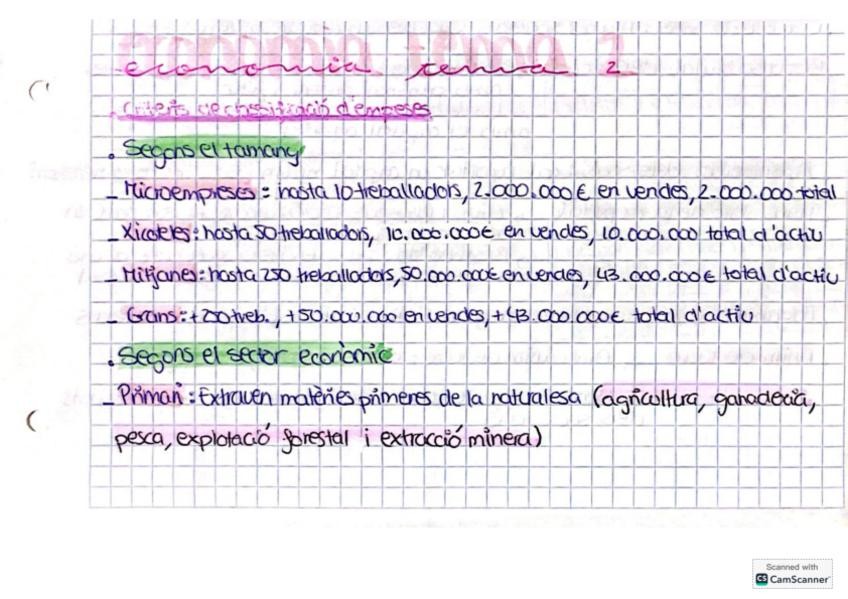 economia tema 2
Criteris de classificació d'empeses
. Segons el tamany
- Microempreses: hasta 10 treballadors, 2.000.000€ en vendes, 2.000.000 total
- Xicotetes: hasta 50 treballadors, 10.000.000€ en vendes, 10.000.000 total d'actiu
- Mitjanes: hasta 250 treballadors, 50.000.000€ en vendes, 43.000.000€ total d'actiu
- Grans: +250 treb., +50.000.000 en vendes, +43.000.000€ total d'actiu
. Segons el sector econòmic
- Primari: Extrauen matèries primeres de la naturalesa (agricultura, ganaderia,
pesca, explotació forestal i extracció minera)
Scanned with
CS CamScanner